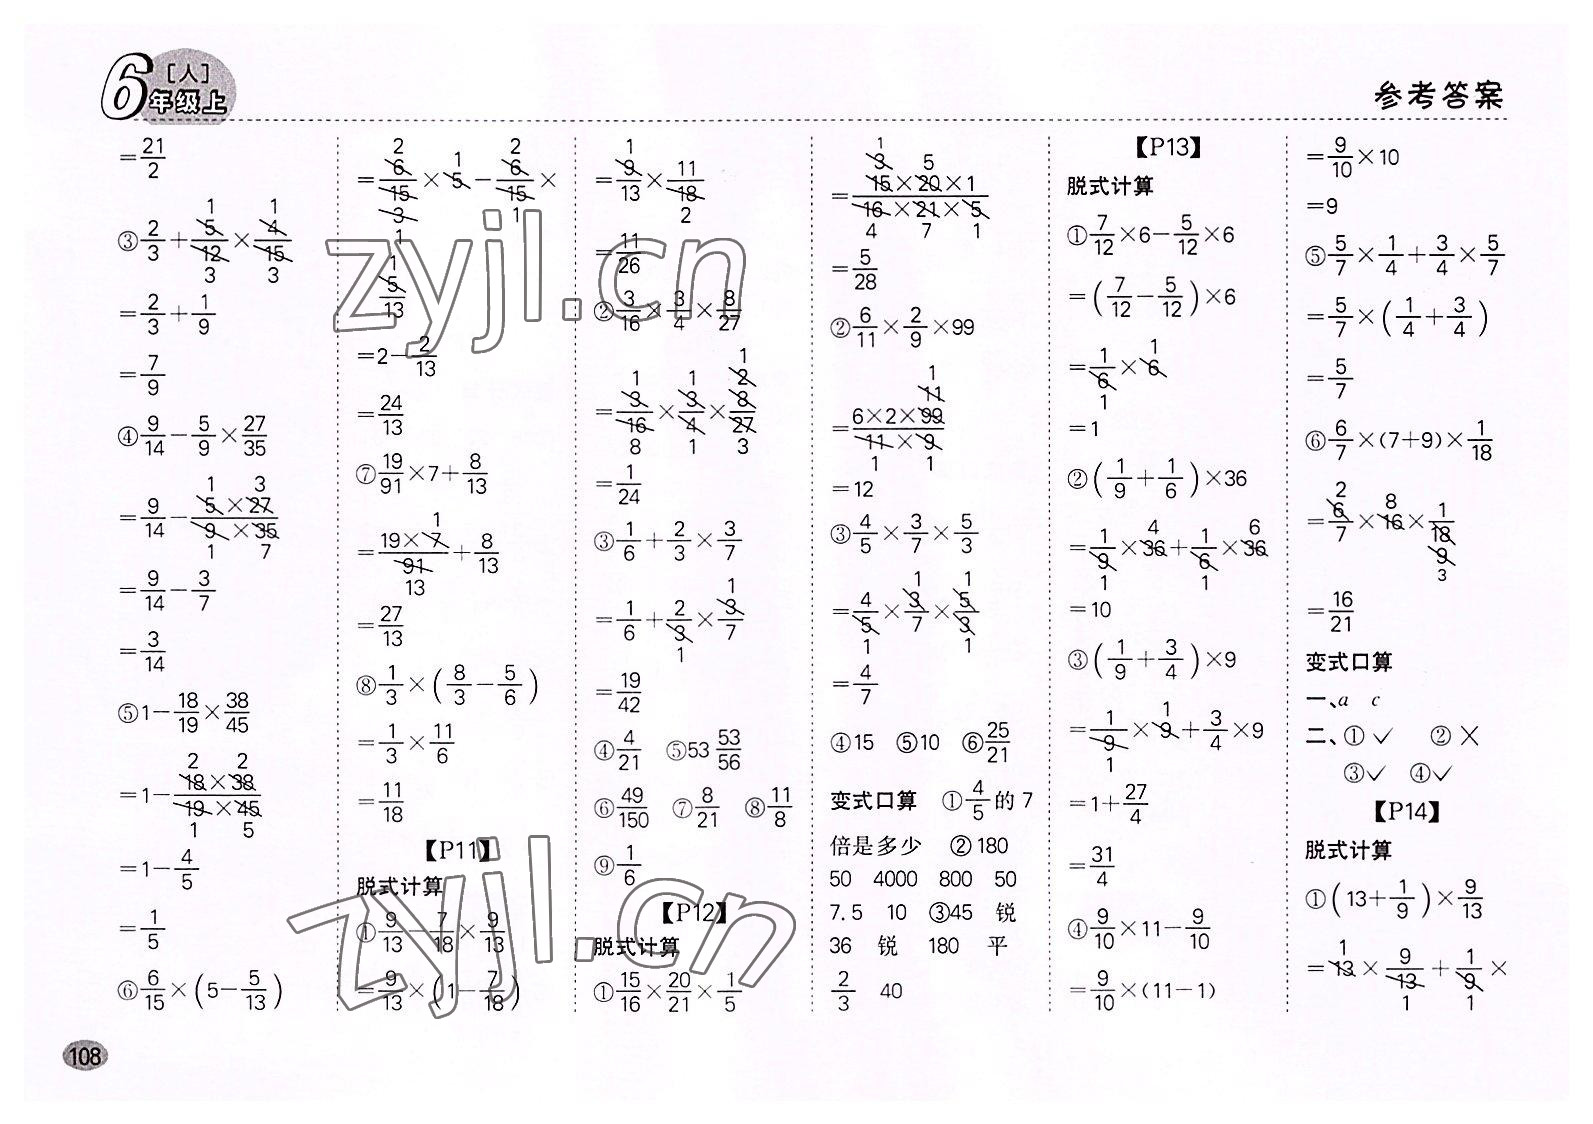 6年级上 [人]
参考答案
=21/2
③2/3+5/12×4/15
=2/3+1/9
=7/9
④9/14-5/9×27/35
=9/14-(5×27)/(9×35)
=9/14-3/7
=3/14
⑤1-18/19×38/45
=1-(18×38)/(19×45)
=1-4/5
=1/5
⑥6/15×(5-5/13)
=6/15×5-6/15×
5/13
=2-2/13
=24/13
⑦19/91×7+8/13
=(19×7)/91+8/13
=27/13
⑧1/3×(8/3-5/6)
=1/3×11/6
=11/18
【P11】
脱式计算
①9/13-7/18×9/13
=9/13×(1-7/18)
=9/13×11/18
=11/26
②3/16×3/4×8/27
=3/16×3/4×8/27
=1/24
③1/6+2/3×3/7
=1/6+2/3×3/7
=19/42
④4/21 ⑤53 53/56
⑥49/150 ⑦8/21 ⑧11/8
⑨1/6
【P12】
脱式计算
①15/16×20/21×1/5
=(15×20×1)/(16×21×5)
=5/28
②6/11×2/9×99
=(6×2×99)/(11×9)
=12
③4/5×3/7×5/3
=4/5×3/7×5/3
=4/7
④15 ⑤10 ⑥25/21
变式口算 ①4/5的7
倍是多少 ②180
50 4000 800 50
7.5 10 ③45 锐
36 锐 180 平
2/3 40
【P13】
脱式计算
①7/12×6-5/12×6
=(7/12-5/12)×6
=1/6×6
=1
②(1/9+1/6)×36
=1/9×36+1/6×36
=10
③(1/9+3/4)×9
=1/9×9+3/4×9
=1+27/4
=31/4
④9/10×11-9/10
=9/10×(11-1)
=9/10×10
=9
⑤5/7×1/4+3/4×5/7
=5/7×(1/4+3/4)
=5/7
⑥6/7×(7+9)×1/18
=6/7×16×1/18
=16/21
变式口算
一、a c
二、①✓ ②✗
③✓ ④✓
【P14】
脱式计算
①(13+1/9)×9/13
=13×9/13+1/9×
108
zyjl.cn
zyjl.cn